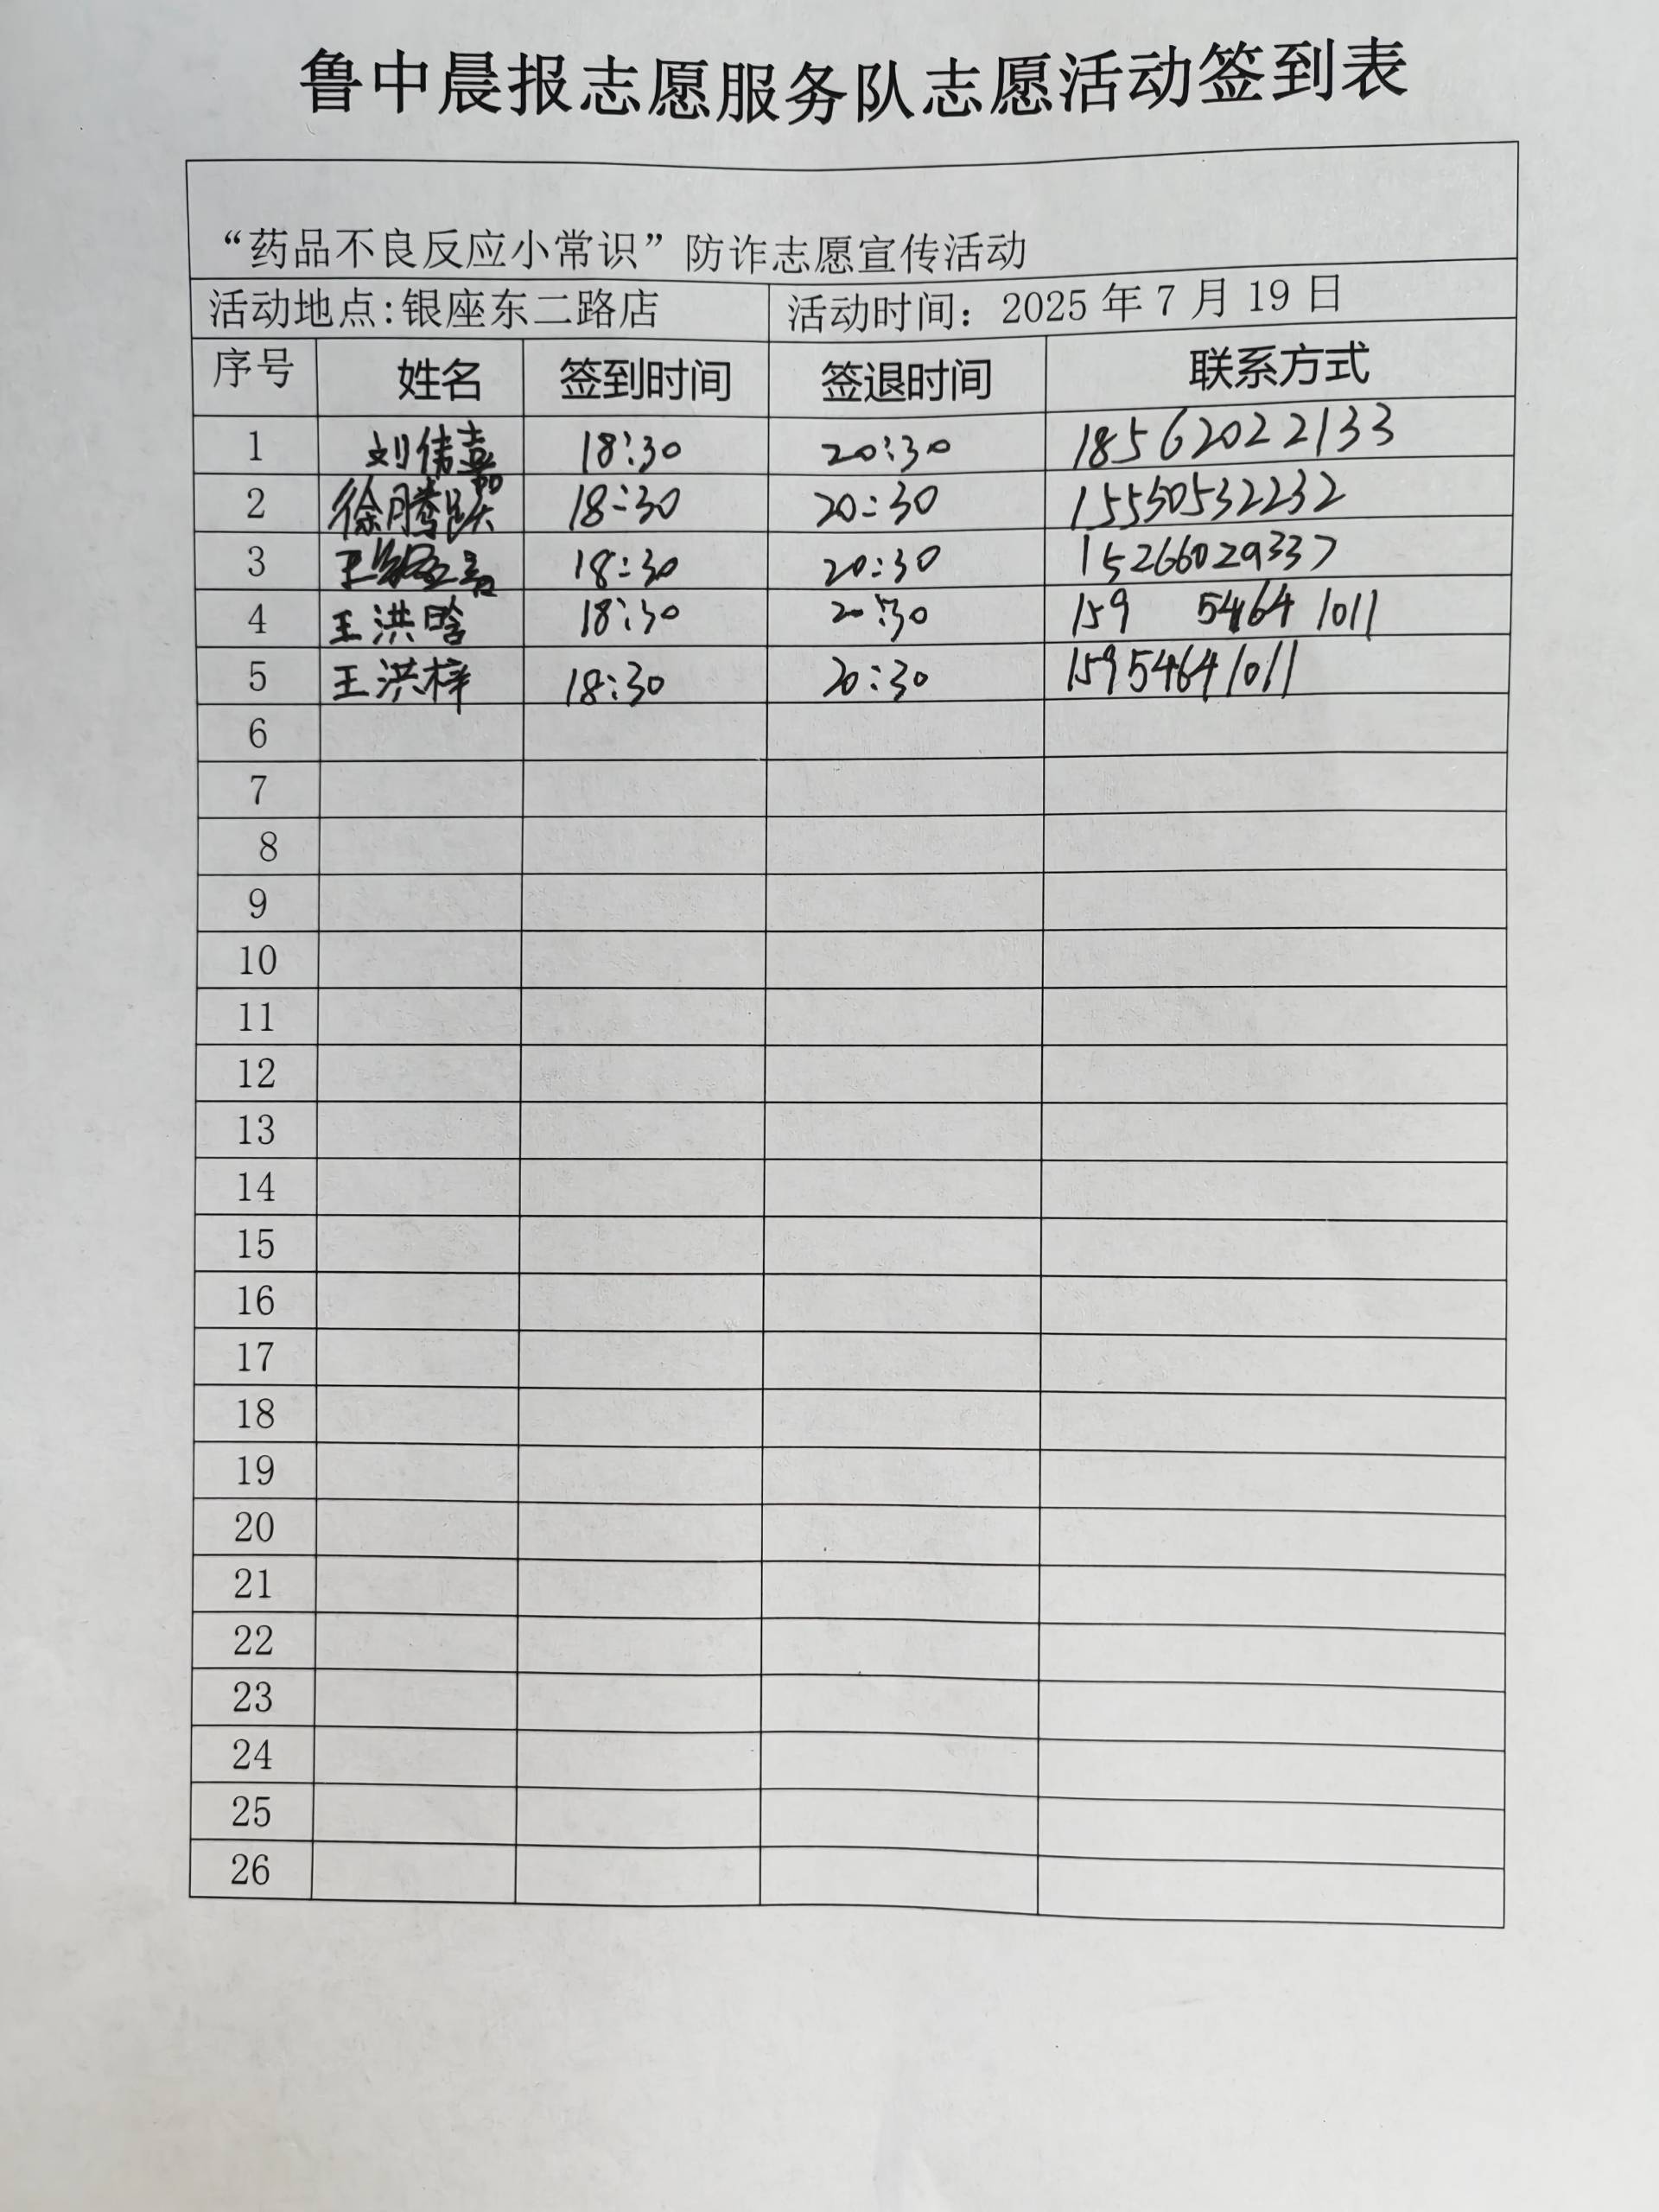 鲁中晨报志愿服务队志愿活动签到表
“药品不良反应小常识”防诈志愿宣传活动
活动地点:银座东二路店 活动时间：2025年7月19日
序号 姓名 签到时间 签退时间 联系方式
1 刘倩嘉 18:30 20:30 18562022133
2 徐腾跃 18:30 20:30 15550532232
3 王 18:30 20:30 15266029337
4 王洪晗 18:30 20:30 159 5464 1011
5 王洪梓 18:30 20:30 15954641011
6
7
8
9
10
11
12
13
14
15
16
17
18
19
20
21
22
23
24
25
26